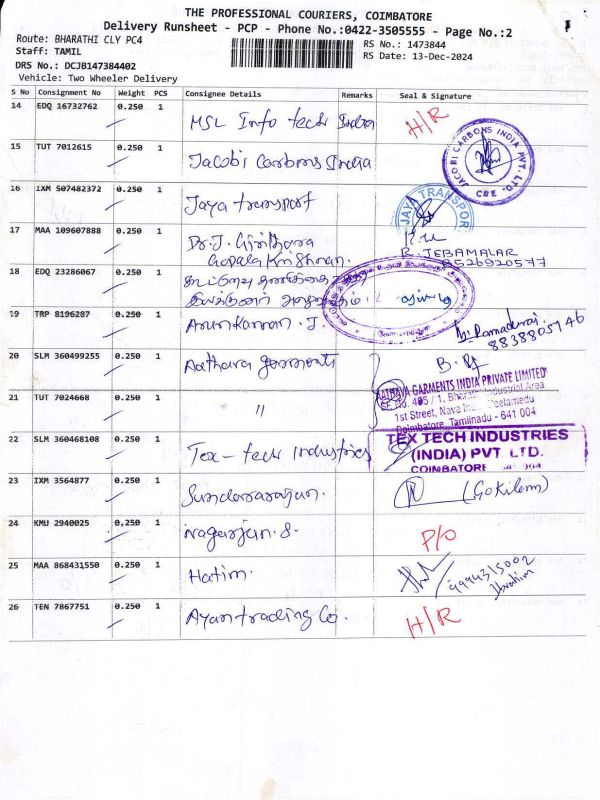 THE PROFESSIONAL COURIERS, COIMBATORE
Delivery Runsheet - PCP - Phone No.:0422-3505555 - Page No.:2
Route: BHARATHI CLY PC4
RS No.: 1473844
Staff: TAMIL
RS Date: 13-Dec-2024
DRS No.: DCJB147384402
Vehicle: Two Wheeler Delivery
S No Consignment No Weight PCS Consignee Details Remarks Seal & Signature
14 EDQ 16732762 0.250 1 MSL Info tech India H/R
15 TUT 7012615 0.250 1 Jacobi Carbons India
JACOBI CARBONS INDIA PVT. LTD. CBE.
16 IXM 507482372 0.250 1 Jaya transport
JAYA TRANSPOR
17 MAA 109607888 0.250 1 Dr. J. Giridhara
Gopala Krishnan.
R. JEBAMALAR
8526920577
18 EDQ 23286067 0.250 1
19 TRP 8196287 0.250 1 Arunkannan. J.
8838805746
20 SLM 360499255 0.250 1 Aathava garments
GARMENTS INDIA PRIVATE LIMITED
Industrial Area
1st Street, Nava
Coimbatore, Tamilnadu - 641 004
21 TUT 7024668 0.250 1 "
22 SLM 360468108 0.250 1 Tex-tech Industries
TEX TECH INDUSTRIES
(INDIA) PVT LTD.
COIMBATORE
23 IXM 3564877 0.250 1 Sundararajan. (Gokilam)
24 KMU 2940025 0.250 1 Nagarjun. S. P/O
25 MAA 868431550 0.250 1 Hatim. 9994315002
Ibrahim
26 TEN 7867751 0.250 1 Ayan trading Co. H/R